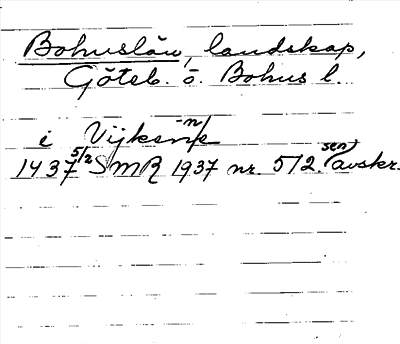 Bohuslän, landskap,
Göteb. o. Bohus l.
i
1437 5/2 SMR 1937 nr. 512. sen avskr.